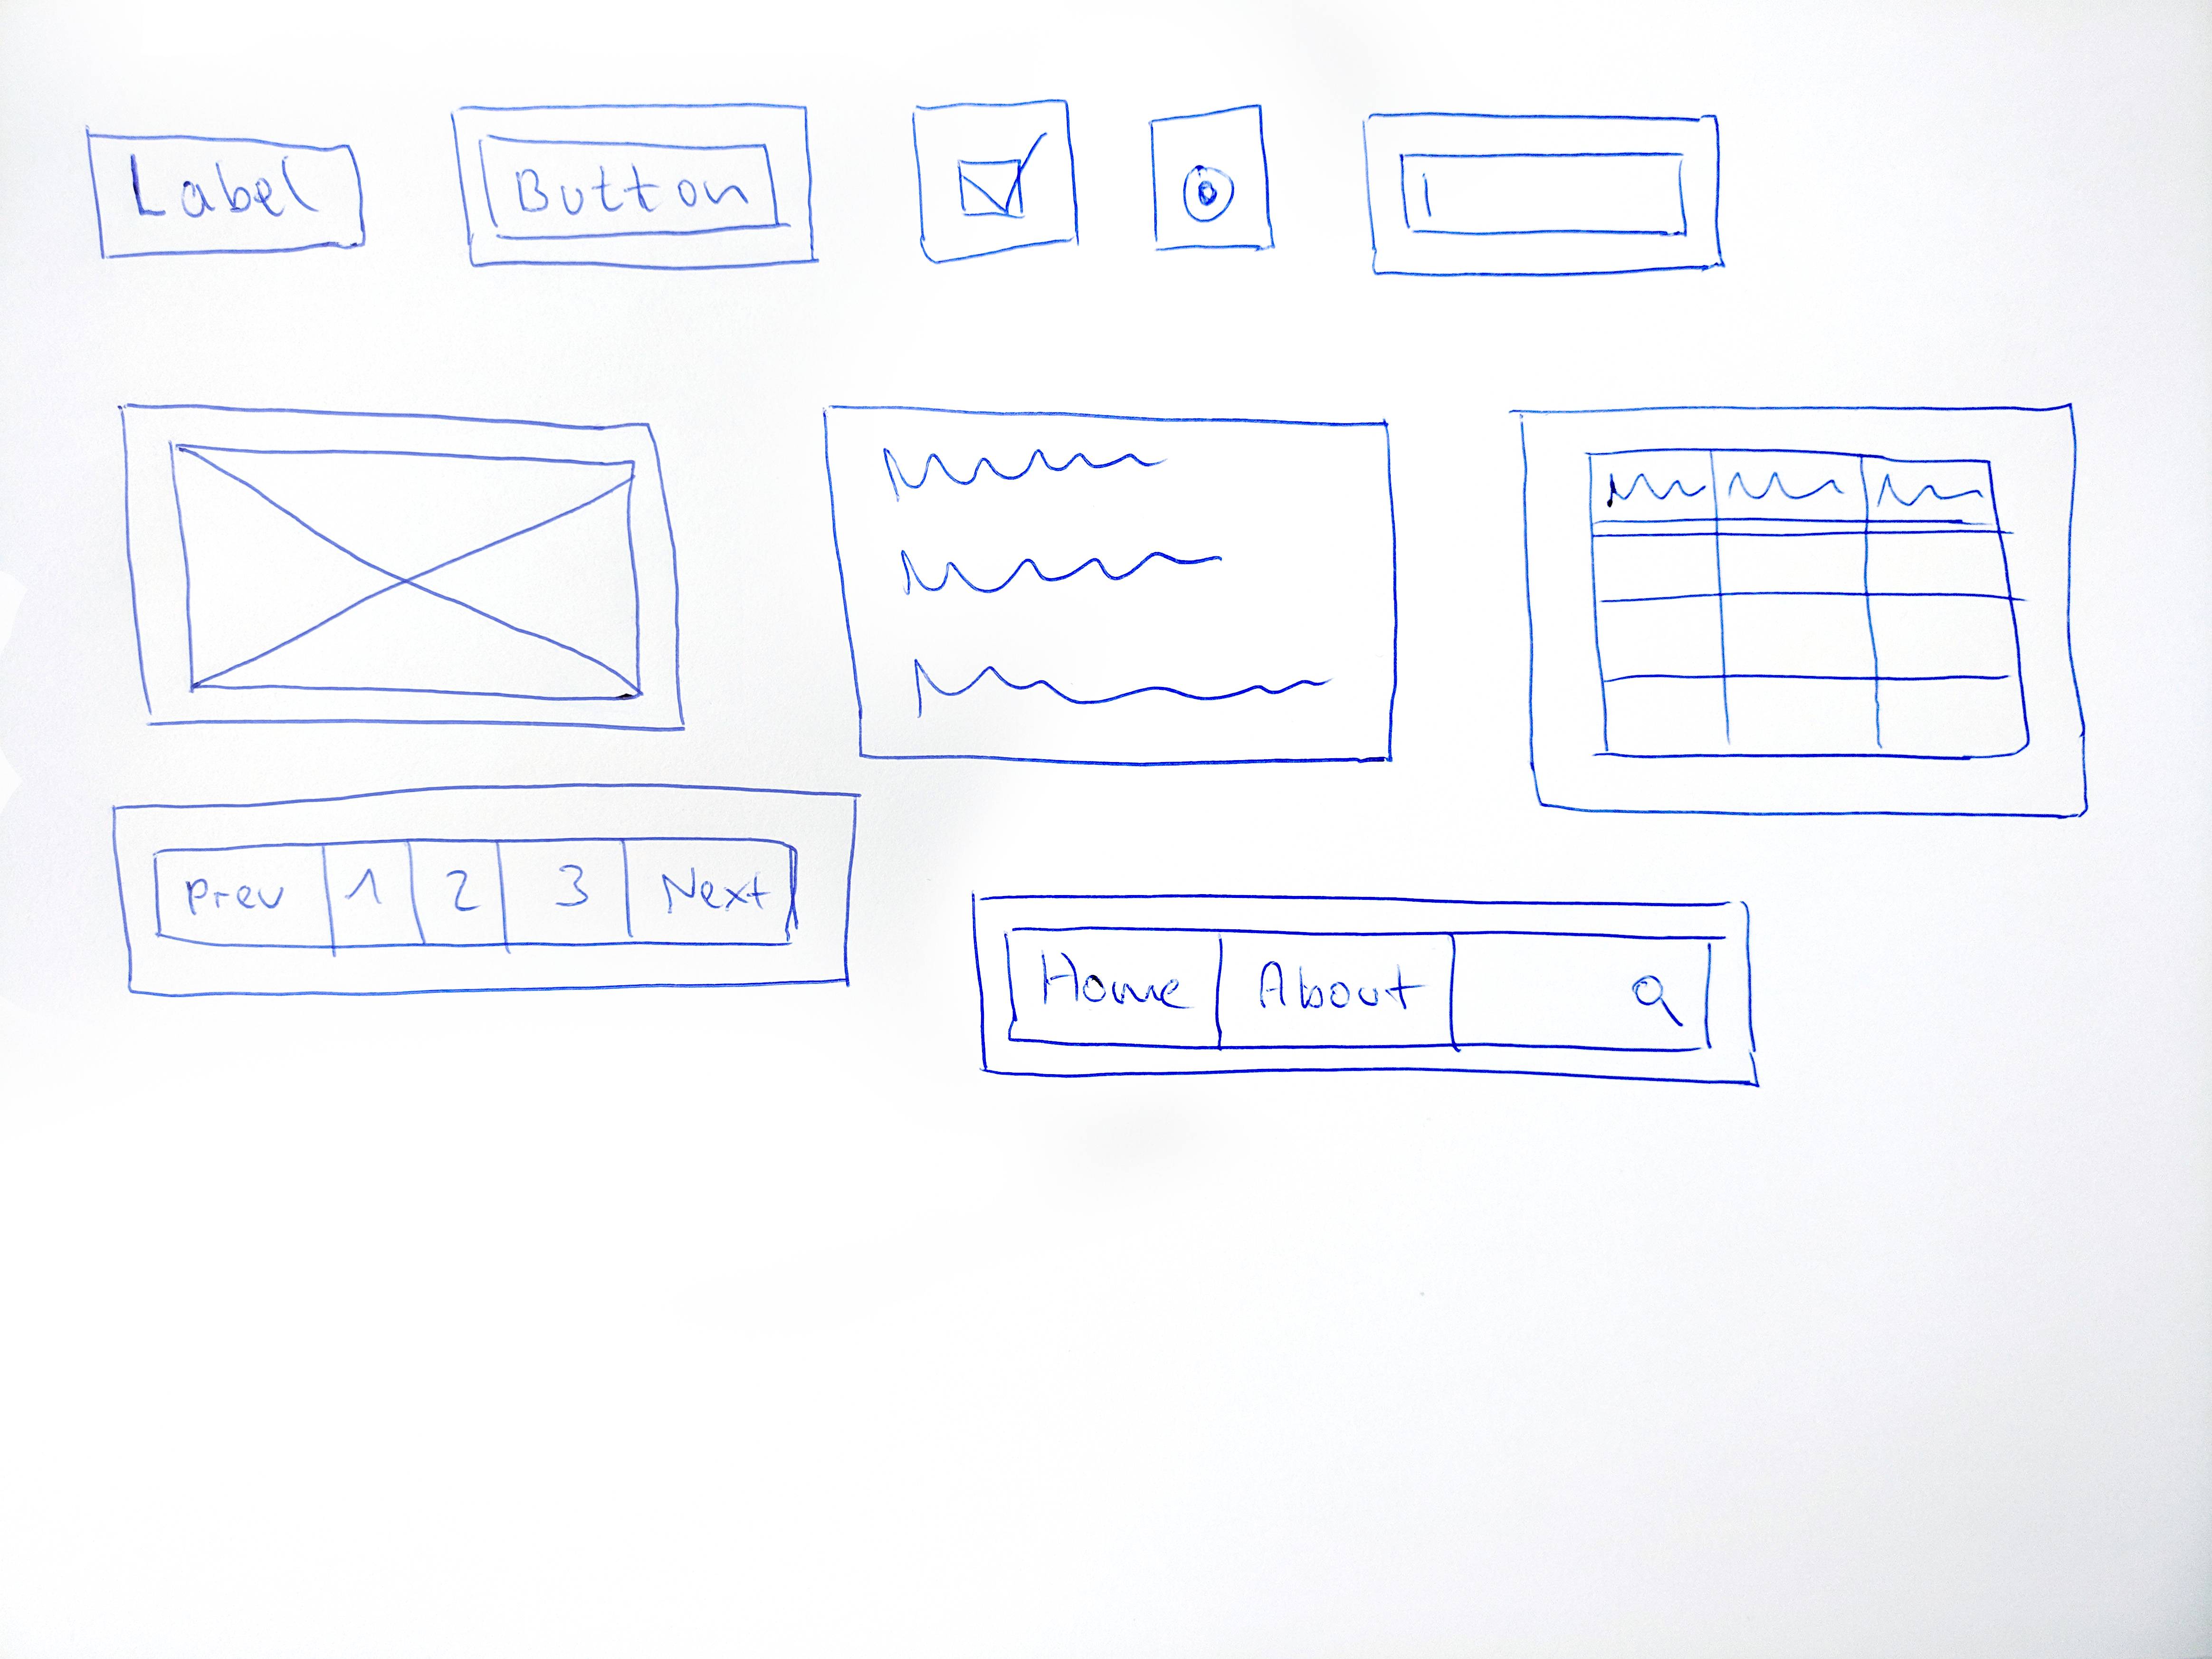 Label Button
Prev 1 2 3 Next
Home About